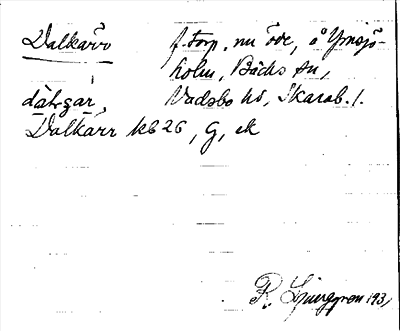 Dalkärr f. torp, nu öde, å Ymsjö-
holm, Bäcks sn,
dàl.çar, Vadsbo hd, Skarab. l.
Dalkärr kb 26, G, ek
R. Ljunggren 193